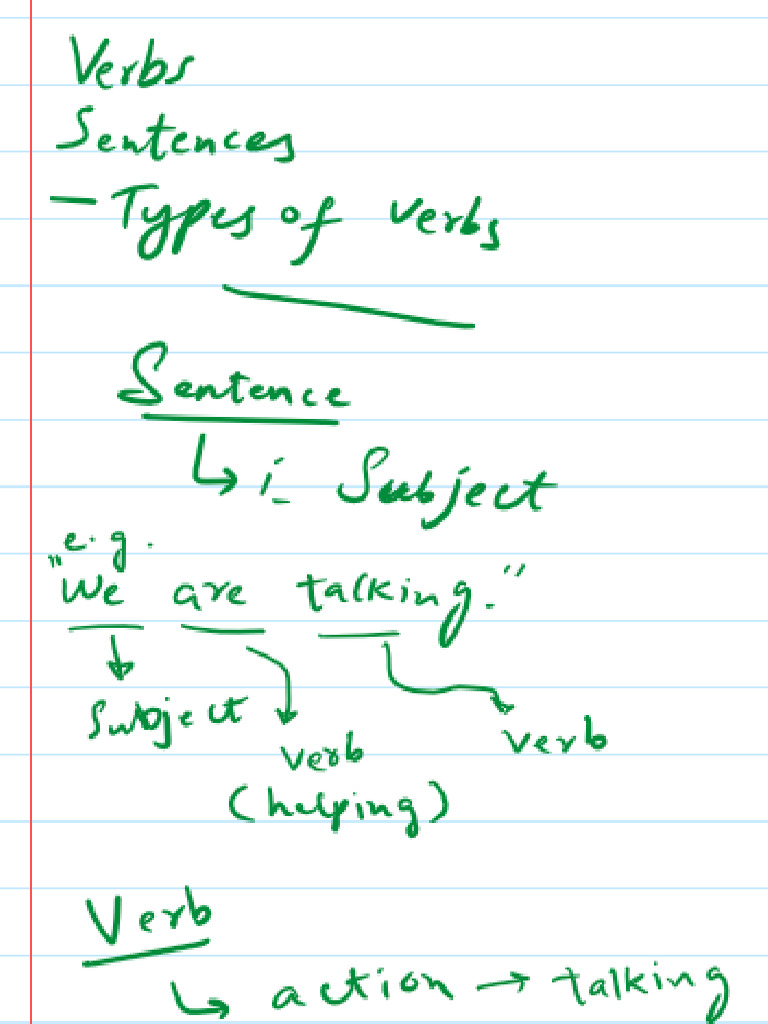 Verbs
Sentences
- Types of verbs
Sentence
↳ i_ Subject
e.g.
"We are talking."
Subject
verb
verb
(helping)
Verb
↳ action → talking